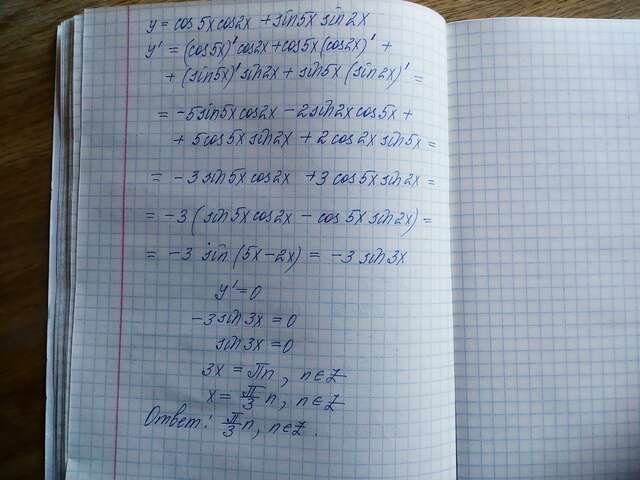 y = cos5x cos2x + sin5x sin2x
y' = (cos5x)' cos2x + cos5x (cos2x)' +
+ (sin5x)' sin2x + sin5x (sin2x)' =
= -5sin5x cos2x - 2sin2x cos5x +
+ 5cos5x sin2x + 2cos2x sin5x =
= -3sin5x cos2x +3cos5x sin2x =
= -3 (sin5x cos2x - cos5x sin2x) =
= -3 sin (5x-2x) = -3 sin3x
y' = 0
-3sin3x = 0
sin3x = 0
3x = πn, n∈Z
x = π/3 n, n∈Z
Ответ: π/3 n, n∈Z.